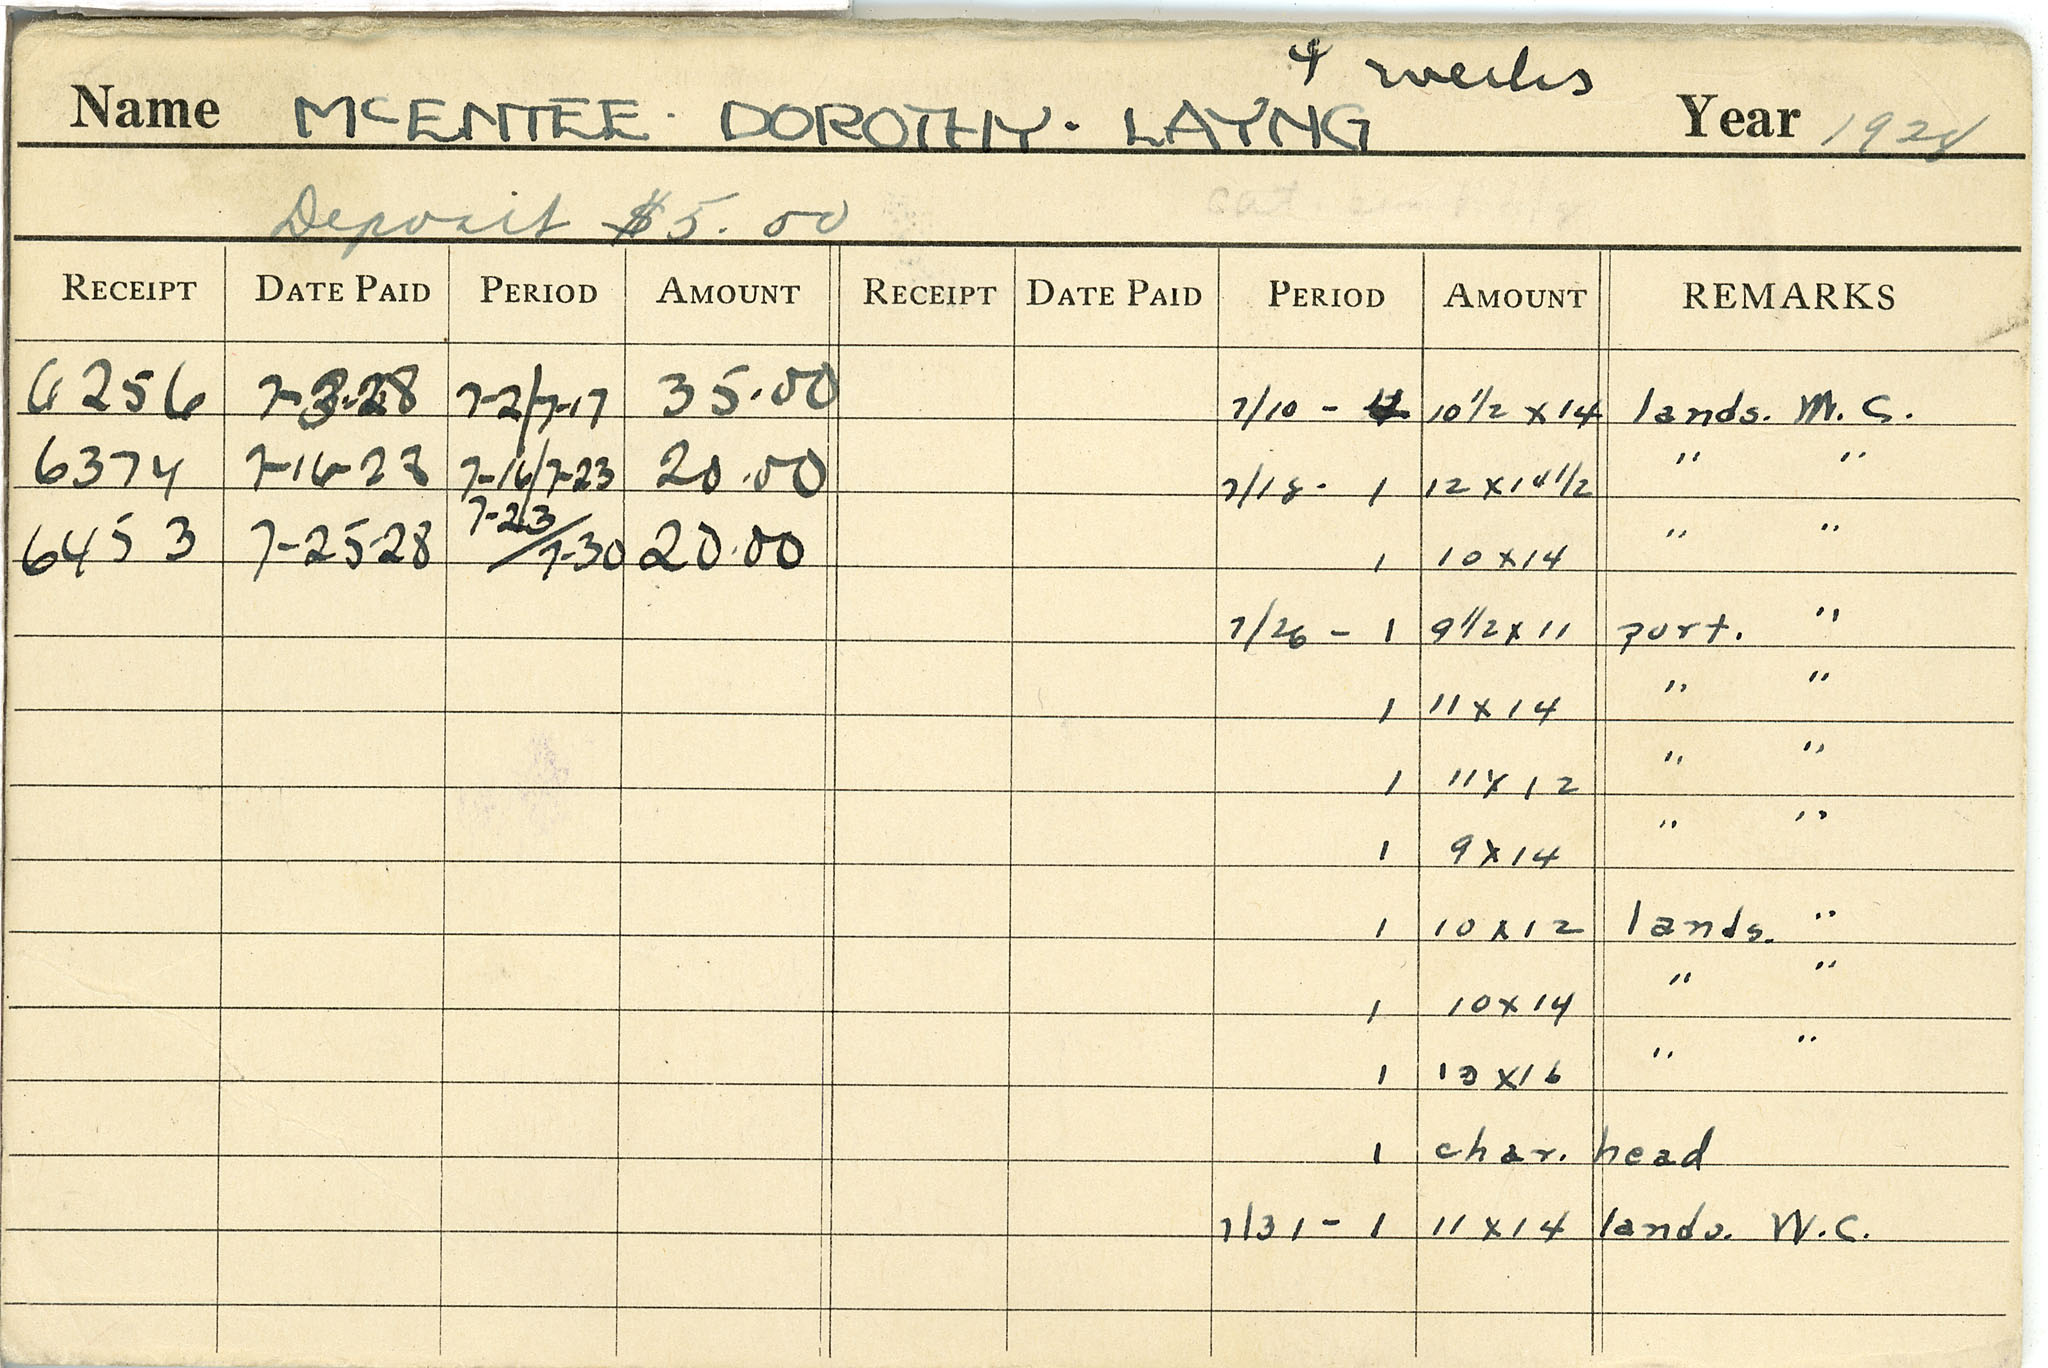 4 weeks
Name McENTEE · DOROTHY · LAYNG Year 1928
Deposit $5.00
RECEIPT DATE PAID PERIOD AMOUNT RECEIPT DATE PAID PERIOD AMOUNT REMARKS
6256 7-3-28 7-2/7-17 35.00 7/10 - 10 1/2 x 14 lands. W. C.
6374 7-16-28 7-16/7-23 20.00 7/18 - 1 12 x 14 1/2 " "
6453 7-25-28 7-23/7-30 20.00 1 10 x 14 " "
7/26 - 1 9 1/2 x 11 port. "
1 11 x 14 " "
1 11 x 12 " "
1 9 x 14 " "
1 10 x 12 lands. "
1 10 x 14 " "
1 x 16 " "
1 char. head
7/31 - 1 11 x 14 lands. W.C.